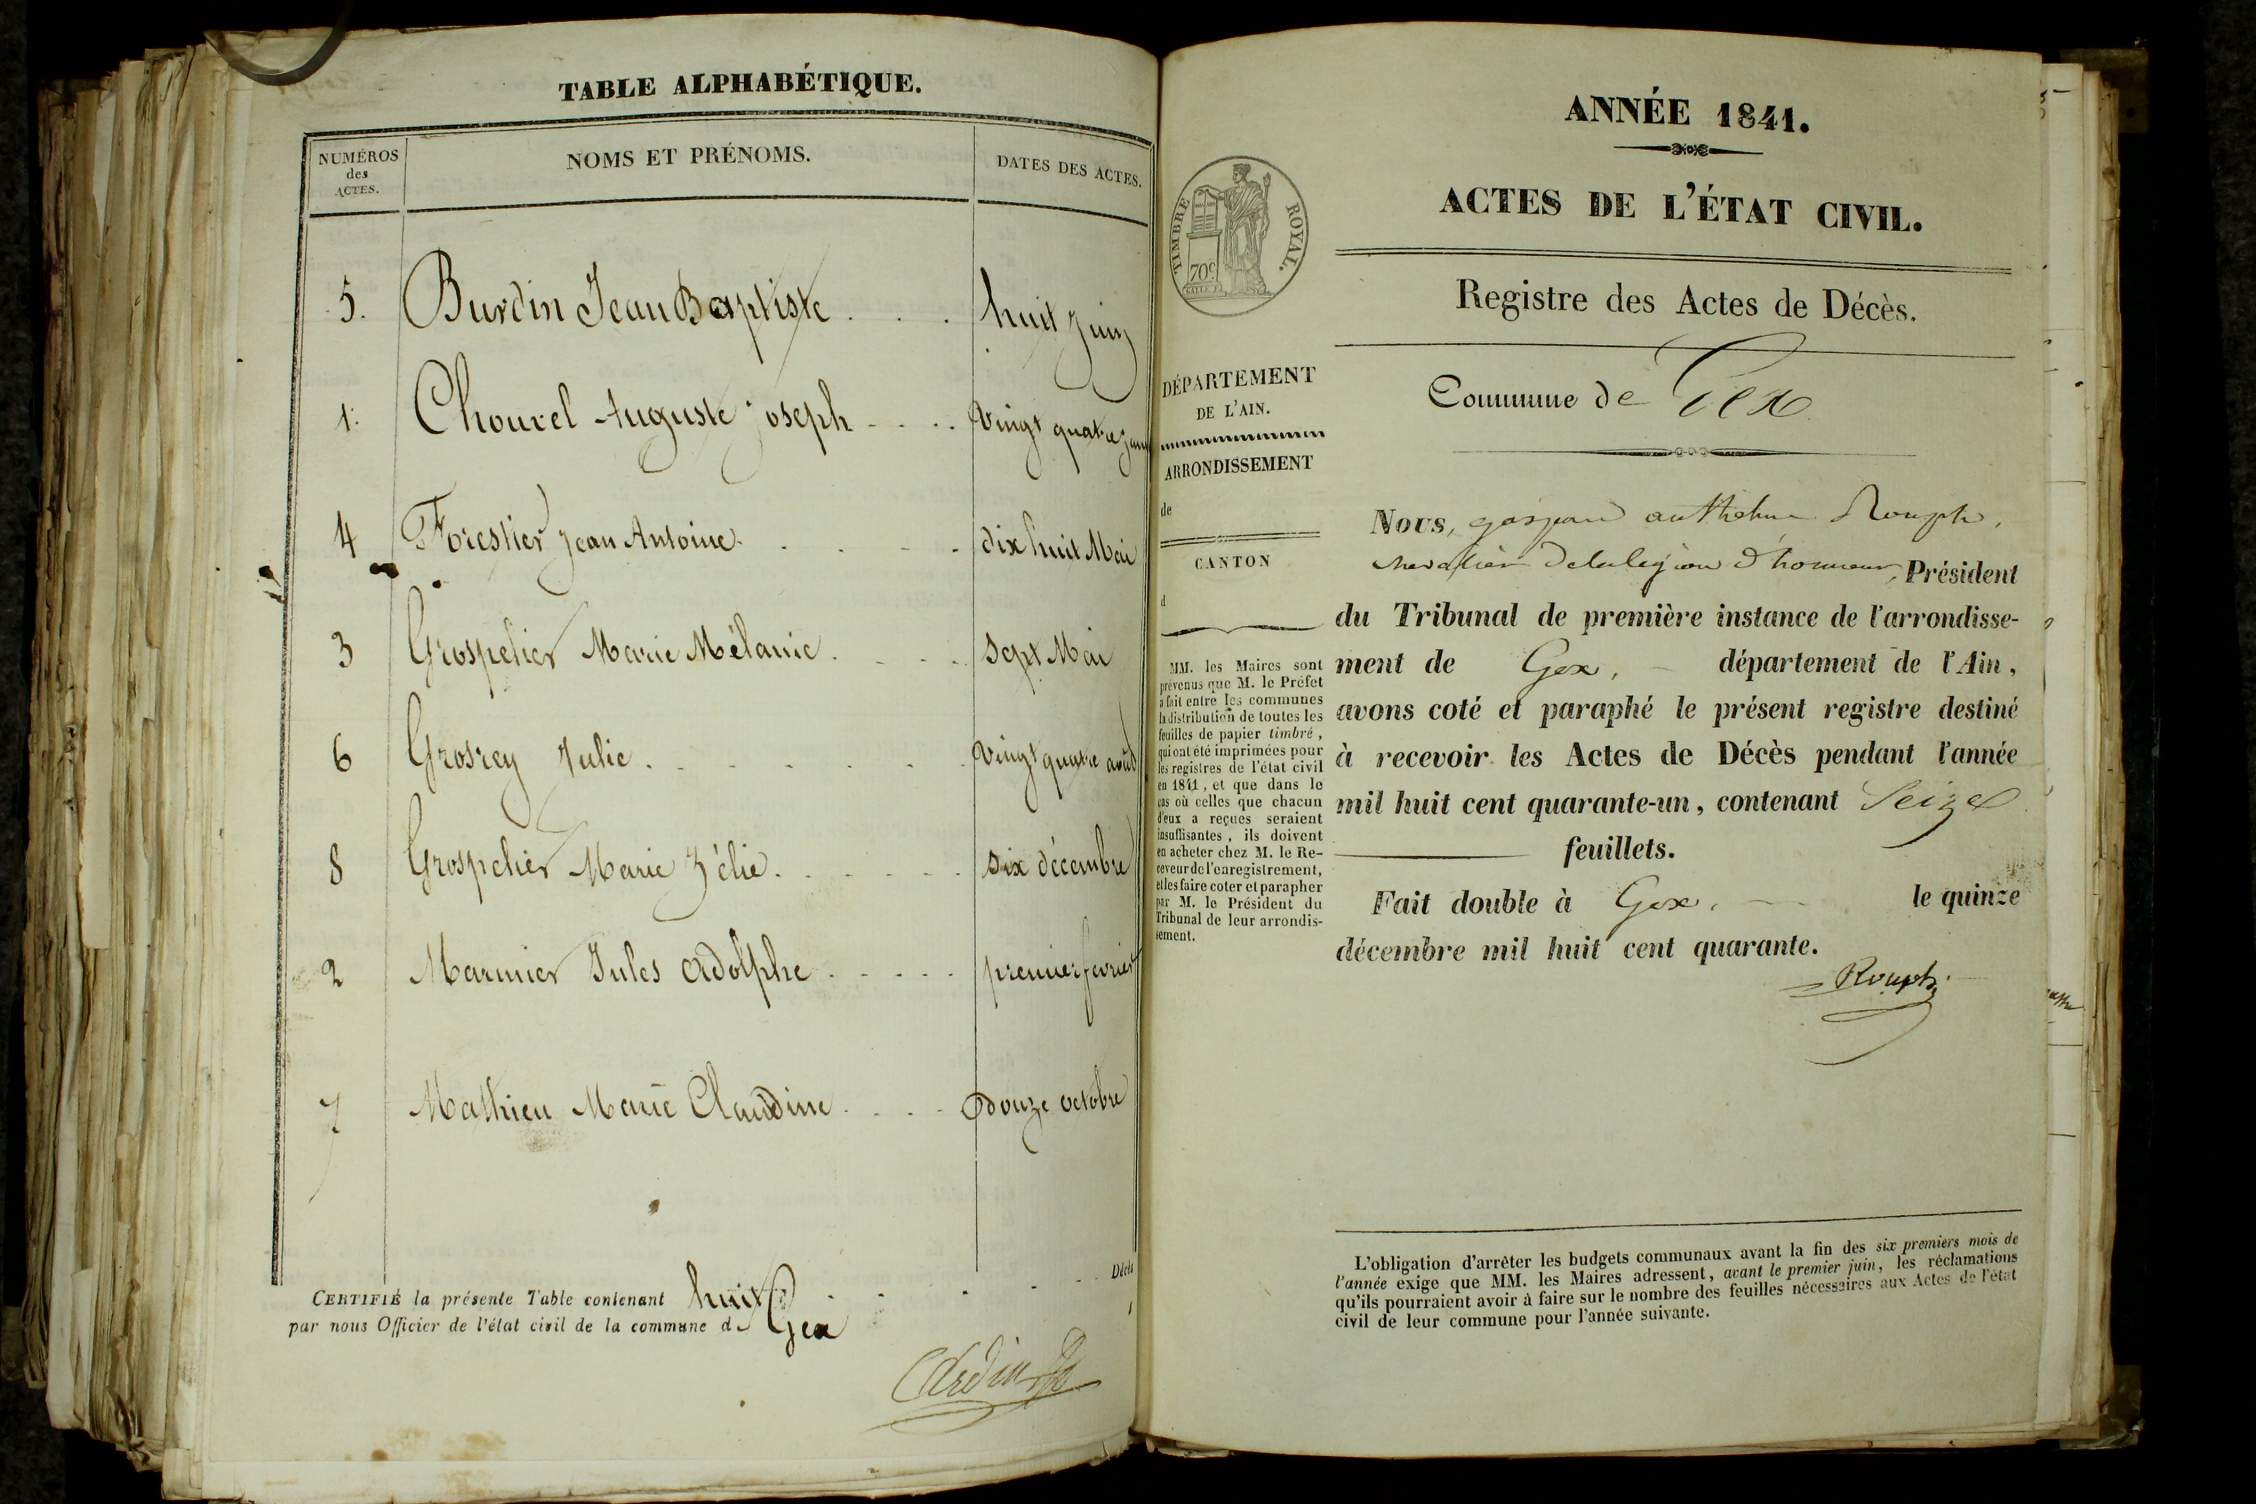 TABLE ALPHABÉTIQUE.
NUMÉROS
des
ACTES.
NOMS ET PRÉNOMS.
DATES DES ACTES.
5. Burdin Jean Baptiste . . . huit juin
1. Chouvel Auguste joseph . . . . Vingt quatre janv
4 Forestier jean Antoine . . . . . dix huit Mai
3 Grospelier Marie Mélanie . . . . sept Mai
6 Grosrey Julie . . . . . . . Vingt quatre août
8 Grospelier Marie Zélie . . . . . . six décembre
2 Marmier Jules Adolphe . . . . . premier fevrier
7 Mathieu Marie Claudine . . . . douze octobre
CERTIFIÉ la présente Table contenant huit . . . . . . Décès
par nous Officier de l'état civil de la commune de Gex
TIMBRE ROYAL.
70c
DÉPARTEMENT
DE L'AIN.
ARRONDISSEMENT
de
CANTON
d
MM. les Maires sont
prévenus que M. le Préfet
a fait entre les communes
la distribution de toutes les
feuilles de papier timbré,
qui ont été imprimées pour
les registres de l'état civil
en 1841, et que dans le
cas où celles que chacun
d'eux a reçues seraient
insuffisantes, ils doivent
en acheter chez M. le Re-
ceveur de l'enregistrement,
et les faire coter et parapher
par M. le Président du
Tribunal de leur arrondis-
sement.
ANNÉE 1841.
ACTES DE L'ÉTAT CIVIL.
Registre des Actes de Décès.
Commune de Gex
Nous, gaspard anthelme Rouph,
chevalier de la légion d'honneur, Président
du Tribunal de première instance de l'arrondisse-
ment de Gex, département de l'Ain,
avons coté et paraphé le présent registre destiné
à recevoir les Actes de Décès pendant l'année
mil huit cent quarante-un, contenant Seize
feuillets.
Fait double à Gex, le quinze
décembre mil huit cent quarante.
Rouph
L'obligation d'arrêter les budgets communaux avant la fin des six premiers mois de
l'année exige que MM. les Maires adressent, avant le premier juin, les réclamations
qu'ils pourraient avoir à faire sur le nombre des feuilles nécessaires aux Actes de l'état
civil de leur commune pour l'année suivante.